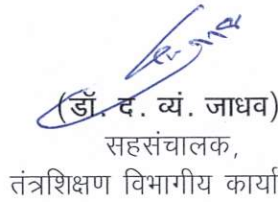 (डॉ. द. व्यं. जाधव)
सहसंचालक,
तंत्रशिक्षण विभागीय कार्या